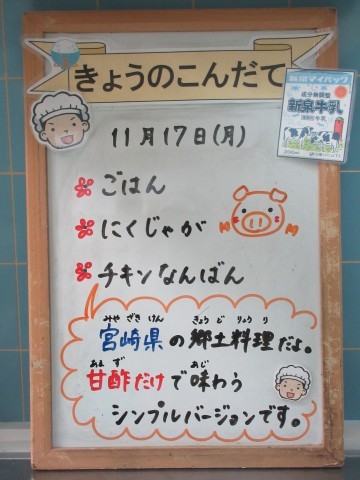 きょうのこんだて
11月17日(月)
ごはん
にくじゃが
チキンなんばん
みやざきけん きょうどりょうり
宮崎県の郷土料理だよ。
あまず あじ
甘酢だけで味わう
シンプルバージョンです。
成分無調整
新泉牛乳